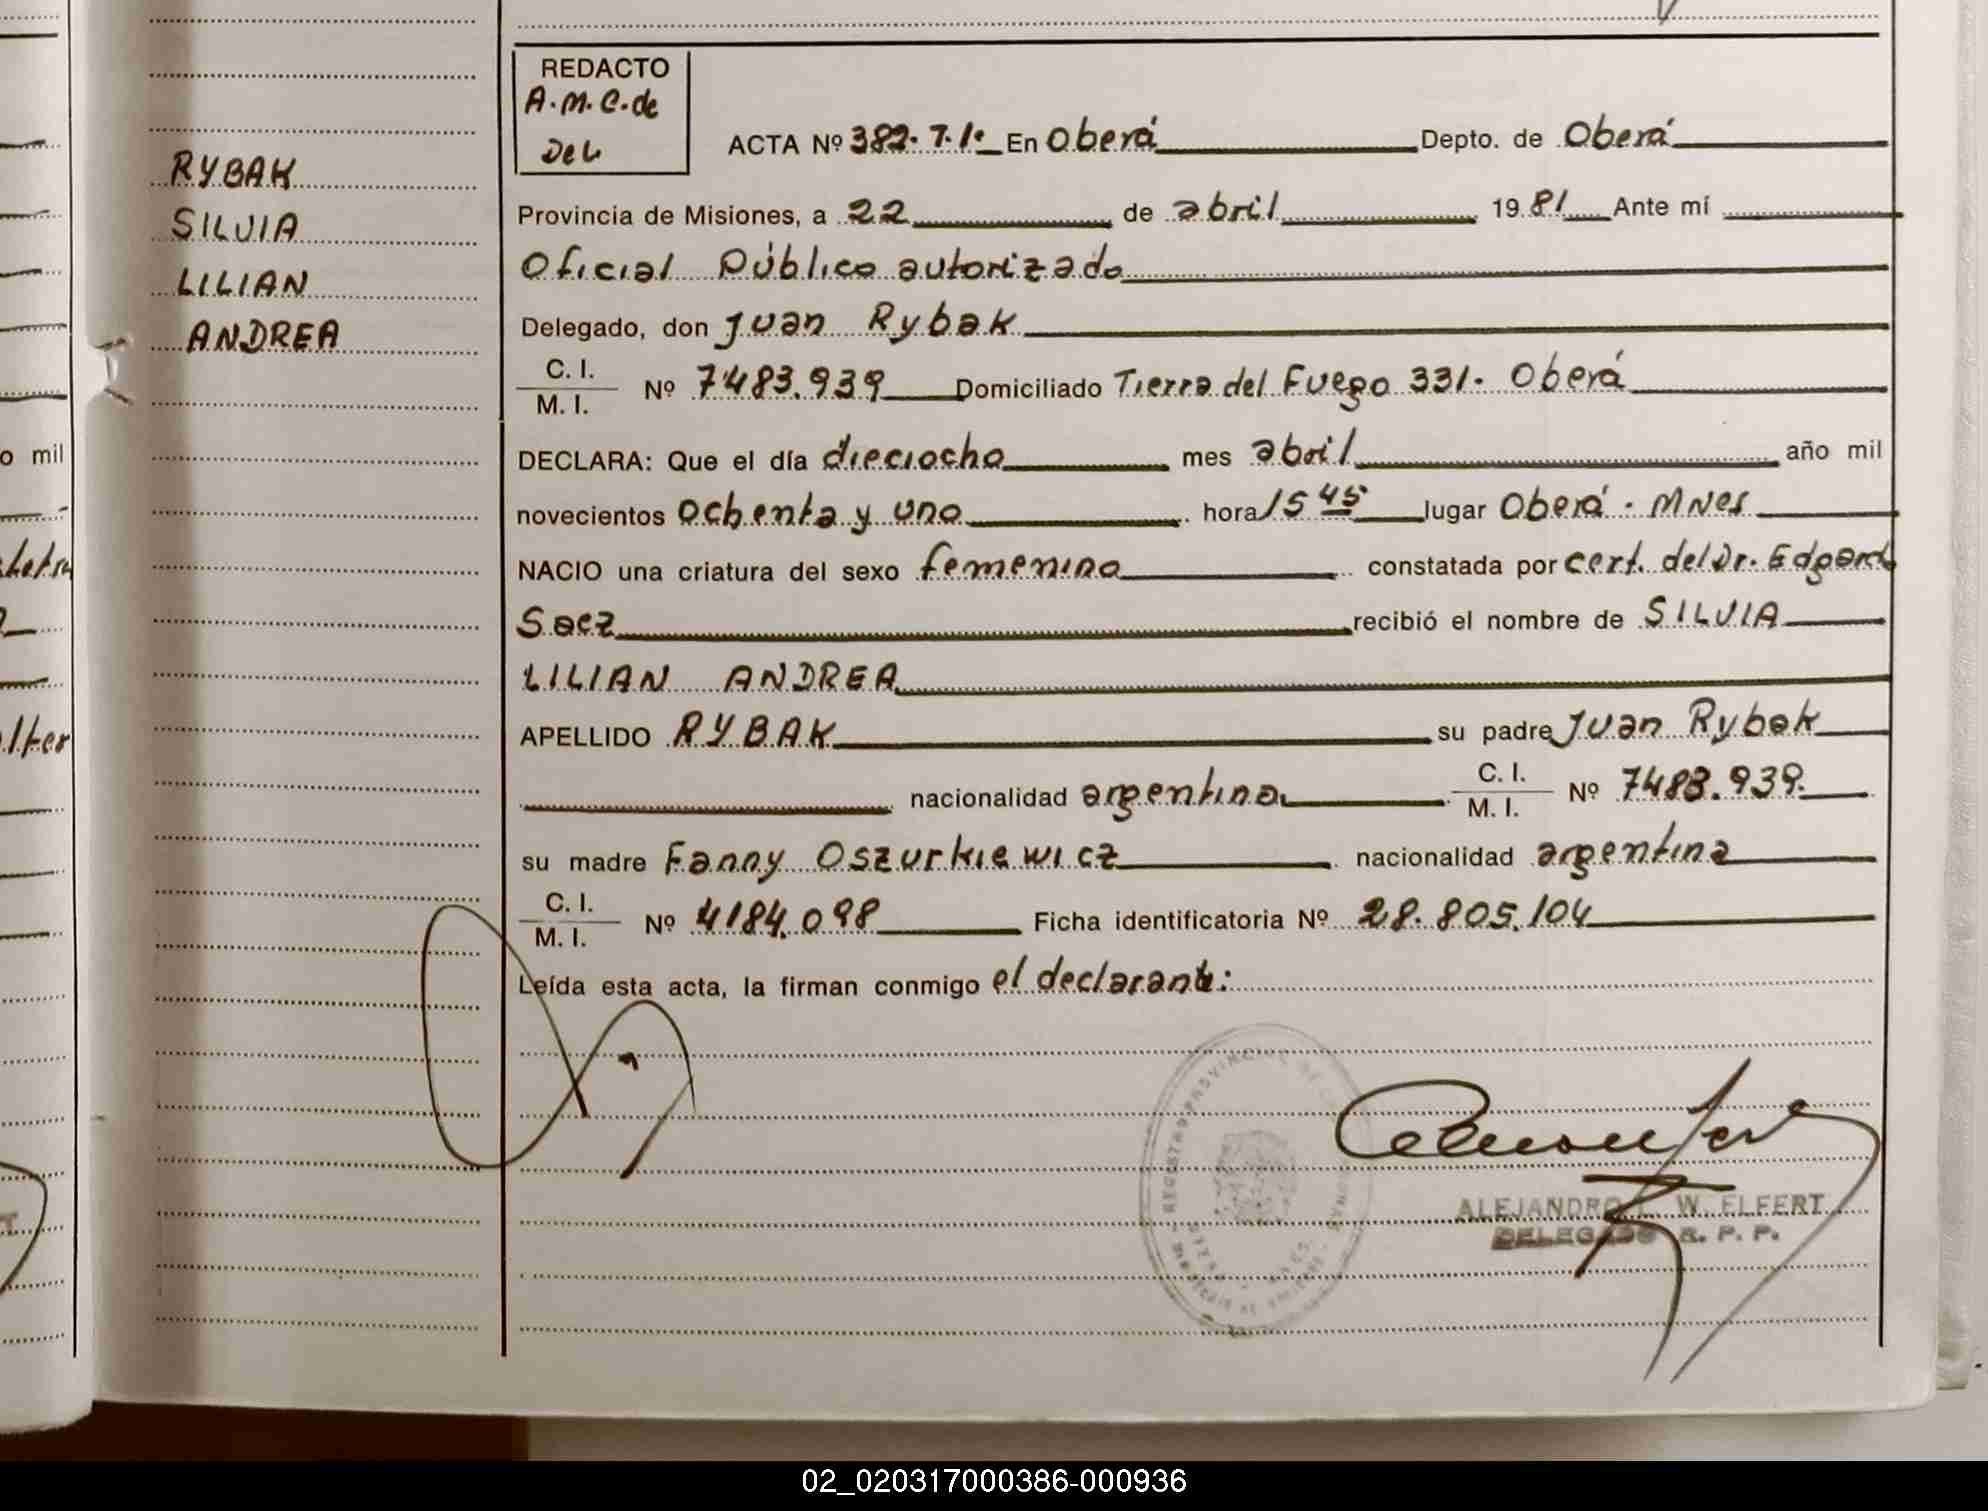 RYBAK
SILVIA
LILIAN
ANDREA
REDACTO
A.M.C.de
DEL
ACTA Nº 382. T. I. En Oberá Depto. de Oberá
Provincia de Misiones, a 22 de abril 1981 Ante mí
Oficial Público autorizado
Delegado, don Juan Rybak
C. I.
M. I. Nº 7483.939 Domiciliado Tierra del Fuego 331. Oberá
DECLARA: Que el día dieciocho mes abril año mil
novecientos ochenta y uno hora 15 45 lugar Oberá. Mnes
NACIO una criatura del sexo femenino constatada por cert. del Dr. Edgardo
Saez recibió el nombre de SILVIA
LILIAN ANDREA
APELLIDO RYBAK su padre Juan Rybak
nacionalidad argentina C. I.
M. I. Nº 7483.939.
su madre Fanny Oszurkiewicz nacionalidad argentina
C. I.
M. I. Nº 4184.098 Ficha identificatoria Nº 28.805.104
Leída esta acta, la firman conmigo el declarante:
ALEJANDRO L. W. ELFERT
DELEGADO R. P. P.
o mil
02_020317000386-000936